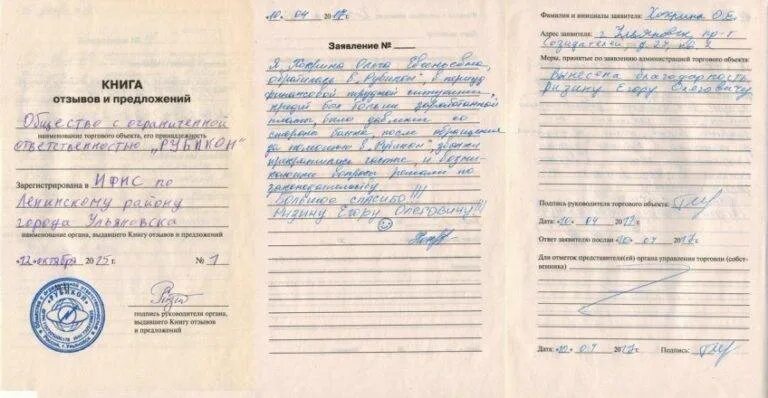 КНИГА
отзывов и предложений
Общество с ограниченной
наименование торгового объекта, его принадлежность
ответственностью „РУБИКОН"
Зарегистрирована в ИФНС по
Ленинскому району
города Ульяновска
наименование органа, выдавшего Книгу отзывов и предложений
«12» октября 2015 г. № 1
подпись руководителя органа,
выдавшего Книгу отзывов
и предложений
«РУБИКОН»
10. 04 2017 г.
Заявление №
Я Хохрина Ольга Евгеньевна,
обратилась в „Рубикон", в период
финансовой трудной ситуации,
кредит был больше заработанной
платы, было давление со
стороны банка, после обращения
за помощью в „Рубикон", звонки
прекратились частые, и возник-
вопросы решали по
законодательству.
Большое спасибо!!!
Ризину Егору Олеговичу!!!
Фамилия и инициалы заявителя: Хохрина О.Е.
Адрес заявителя: г. Ульяновск, пр-т
Созидателей д.
Меры, принятые по заявлению администрацией торгового объекта:
Вынесена благодарность
Ризину Егору Олеговичу
Подпись руководителя торгового объекта:
Дата: «10» 04 2017 г.
Ответ заявителю послан «10» 04 2017 г.
Для отметок представителя(ей) органа управления торговли (собст-
венника)
Дата: «10» 04 2017 г. Подпись: